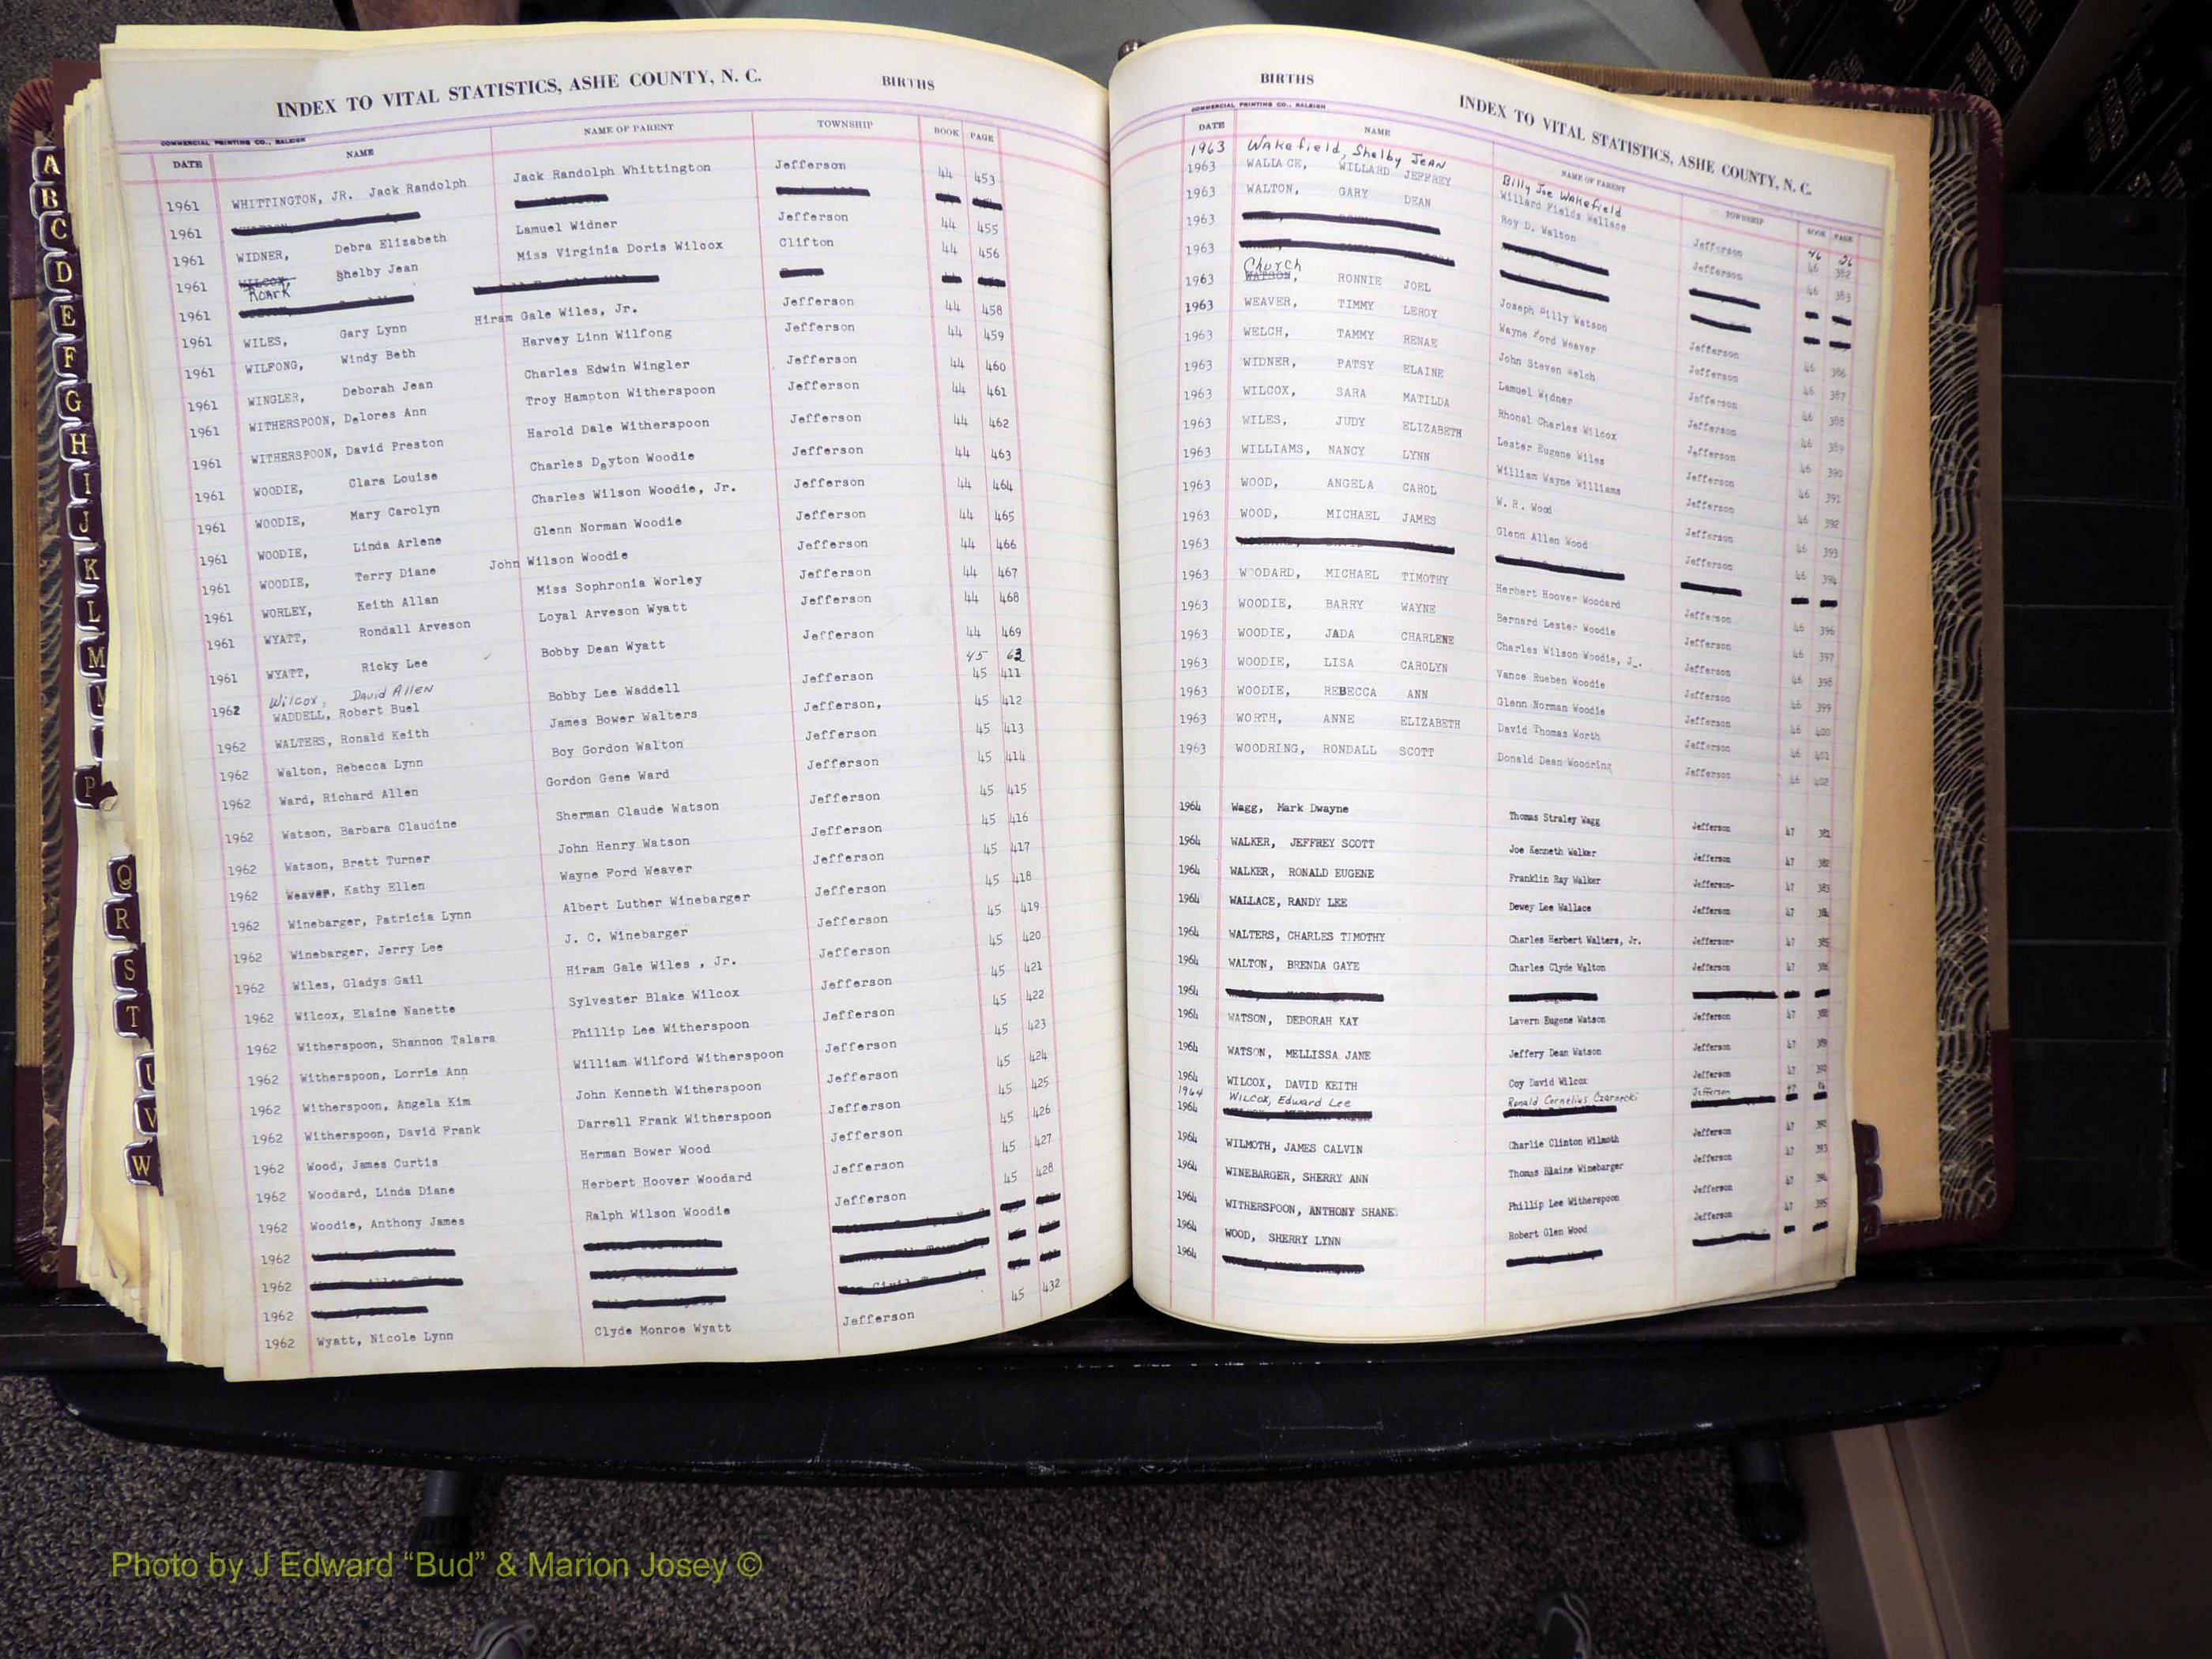 INDEX TO VITAL STATISTICS, ASHE COUNTY, N. C. BIRTHS
COMMERCIAL PRINTING CO., RALEIGH
DATE NAME NAME OF PARENT TOWNSHIP BOOK PAGE
1961 WHITTINGTON, JR. Jack Randolph Jack Randolph Whittington Jefferson 44 453
1961
1961 WIDNER, Debra Elizabeth Lamuel Widner Jefferson 44 455
1961 WILCOX, Roark Shelby Jean Miss Virginia Doris Wilcox Clifton 44 456
1961
1961 WILES, Gary Lynn Hiram Gale Wiles, Jr. Jefferson 44 458
1961 WILFONG, Windy Beth Harvey Linn Wilfong Jefferson 44 459
1961 WINGLER, Deborah Jean Charles Edwin Wingler Jefferson 44 460
1961 WITHERSPOON, Delores Ann Troy Hampton Witherspoon Jefferson 44 461
1961 WITHERSPOON, David Preston Harold Dale Witherspoon Jefferson 44 462
1961 WOODIE, Clara Louise Charles Dayton Woodie Jefferson 44 463
1961 WOODIE, Mary Carolyn Charles Wilson Woodie, Jr. Jefferson 44 464
1961 WOODIE, Linda Arlene Glenn Norman Woodie Jefferson 44 465
1961 WOODIE, Terry Diane John Wilson Woodie Jefferson 44 466
1961 WORLEY, Keith Allan Miss Sophronia Worley Jefferson 44 467
1961 WYATT, Rondall Arveson Loyal Arveson Wyatt Jefferson 44 468
1961 WYATT, Ricky Lee Bobby Dean Wyatt Jefferson 44 469
Wilcox, David Allen 45 63
1962 WADDELL, Robert Buel Bobby Lee Waddell Jefferson 45 411
1962 WALTERS, Ronald Keith James Bower Walters Jefferson, 45 412
1962 Walton, Rebecca Lynn Boy Gordon Walton Jefferson 45 413
1962 Ward, Richard Allen Gordon Gene Ward Jefferson 45 414
1962 Watson, Barbara Claudine Sherman Claude Watson Jefferson 45 415
1962 Watson, Brett Turner John Henry Watson Jefferson 45 416
1962 Weaver, Kathy Ellen Wayne Ford Weaver Jefferson 45 417
1962 Winebarger, Patricia Lynn Albert Luther Winebarger Jefferson 45 418
1962 Winebarger, Jerry Lee J. C. Winebarger Jefferson 45 419
1962 Wiles, Gladys Gail Hiram Gale Wiles , Jr. Jefferson 45 420
1962 Wilcox, Elaine Nanette Sylvester Blake Wilcox Jefferson 45 421
1962 Witherspoon, Shannon Talara Phillip Lee Witherspoon Jefferson 45 422
1962 Witherspoon, Lorrie Ann William Wilford Witherspoon Jefferson 45 423
1962 Witherspoon, Angela Kim John Kenneth Witherspoon Jefferson 45 424
1962 Witherspoon, David Frank Darrell Frank Witherspoon Jefferson 45 425
1962 Wood, James Curtis Herman Bower Wood Jefferson 45 426
1962 Woodard, Linda Diane Herbert Hoover Woodard Jefferson 45 427
1962 Woodie, Anthony James Ralph Wilson Woodie Jefferson 45 428
1962
1962
1962
1962 Wyatt, Nicole Lynn Clyde Monroe Wyatt Jefferson 45 432
BIRTHS INDEX TO VITAL STATISTICS, ASHE COUNTY, N. C.
COMMERCIAL PRINTING CO., RALEIGH
DATE NAME NAME OF PARENT TOWNSHIP BOOK PAGE
1963 Wakefield, Shelby Jean Billy Joe Wakefield Jefferson 46 26
1963 WALLACE, WILLARD JEFFREY Willard Fields Wallace Jefferson 46 382
1963 WALTON, GARY DEAN Roy D. Walton Jefferson 46 383
1963
1963
1963 Church WATSON, RONNIE JOEL Joseph Billy Watson Jefferson 46 386
1963 WEAVER, TIMMY LEROY Wayne Ford Weaver Jefferson 46 387
1963 WELCH, TAMMY RENAE John Steven Welch Jefferson 46 388
1963 WIDNER, PATSY ELAINE Lamuel Widner Jefferson 46 389
1963 WILCOX, SARA MATILDA Rhonal Charles Wilcox Jefferson 46 390
1963 WILES, JUDY ELIZABETH Lester Eugene Wiles Jefferson 46 391
1963 WILLIAMS, NANCY LYNN William Wayne Williams Jefferson 46 392
1963 WOOD, ANGELA CAROL W. R. Wood Jefferson 46 393
1963 WOOD, MICHAEL JAMES Glenn Allen Wood Jefferson 46 394
1963
1963 WOODARD, MICHAEL TIMOTHY Herbert Hoover Woodard Jefferson 46 396
1963 WOODIE, BARRY WAYNE Bernard Lester Woodie Jefferson 46 397
1963 WOODIE, JADA CHARLENE Charles Wilson Woodie, J_. Jefferson 46 398
1963 WOODIE, LISA CAROLYN Vance Rueben Woodie Jefferson 46 399
1963 WOODIE, REBECCA ANN Glenn Norman Woodie Jefferson 46 400
1963 WORTH, ANNE ELIZABETH David Thomas Worth Jefferson 46 401
1963 WOODRING, RONDALL SCOTT Donald Dean Woodring Jefferson 46 402
1964 Wagg, Mark Dwayne Thomas Straley Wagg Jefferson 47 381
1964 WALKER, JEFFREY SCOTT Joe Kenneth Walker Jefferson 47 382
1964 WALKER, RONALD EUGENE Franklin Ray Walker Jefferson- 47 383
1964 WALLACE, RANDY LEE Dewey Lee Wallace Jefferson 47 384
1964 WALTERS, CHARLES TIMOTHY Charles Herbert Walters, Jr. Jefferson- 47 385
1964 WALTON, BRENDA GAYE Charles Clyde Walton Jefferson 47 386
1964
1964 WATSON, DEBORAH KAY Lavern Eugene Watson Jefferson 47 388
1964 WATSON, MELLISSA JANE Jeffery Dean Watson Jefferson 47 389
1964 WILCOX, DAVID KEITH Coy David Wilcox Jefferson 47 390
1964 Wilcox, Edward Lee Ronald Cornelius Czarnecki Jefferson 47
1964
1964 WILMOTH, JAMES CALVIN Charlie Clinton Wilmoth Jefferson 47
1964 WINEBARGER, SHERRY ANN Thomas Blaine Winebarger Jefferson 47 393
1964 WITHERSPOON, ANTHONY SHANE Phillip Lee Witherspoon Jefferson 47 394
1964 WOOD, SHERRY LYNN Robert Glen Wood Jefferson 47 395
1964
A
B
C
D
E
F
G
H
I
J
K
L
M
P
Q
R
S
T
U
V
W
VITAL
STATISTICS
Photo by J Edward “Bud” & Marion Josey ©